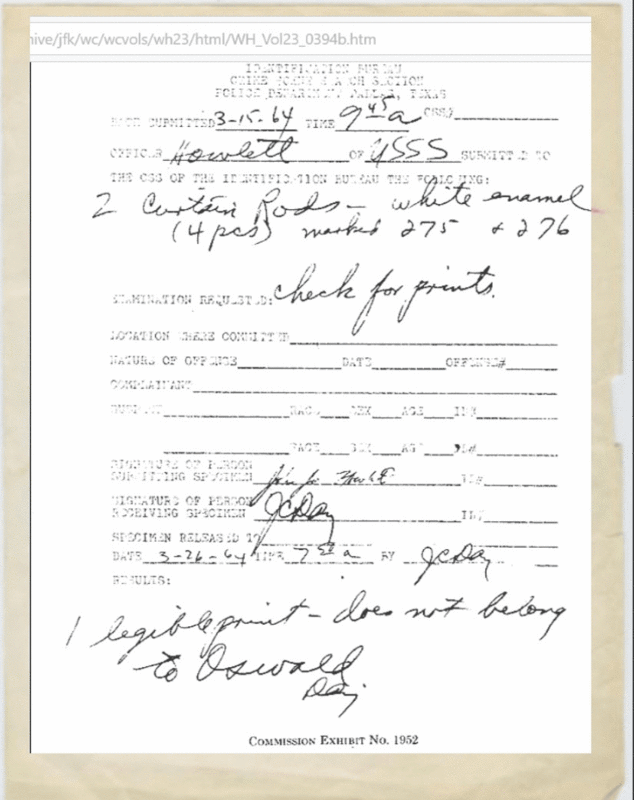 hive/jfk/wc/wcvols/wh23/html/WH_Vol23_0394b.htm
IDENTIFICATION BUREAU
CRIME SCENE SEARCH SECTION
POLICE DEPARTMENT DALLAS, TEXAS
DATE SUBMITTED 3-15-64 TIME 9 45 a CSS#
OFFICER Howlett OF USSS SUBMITTED TO
THE CSS OF THE IDENTIFICATION BUREAU THE FOLLOWING:
2 Curtain Rods - white enamel
(4 pcs) marked 275 + 276
EXAMINATION REQUESTED: check for prints.
LOCATION WHERE COMMITTED
NATURE OF OFFENSE DATE OFFENSE#
COMPLAINANT
SUSPECT RACE SEX AGE ID#
RACE SEX AGE ID#
SIGNATURE OF PERSON
SUBMITTING SPECIMEN ID#
SIGNATURE OF PERSON
RECEIVING SPECIMEN JCDay ID#
SPECIMEN RELEASED TO
DATE 3-26-64 TIME 7 a BY JCDay
RESULTS:
1 legible print - does not belong
to Oswald
Day
COMMISSION EXHIBIT No. 1952